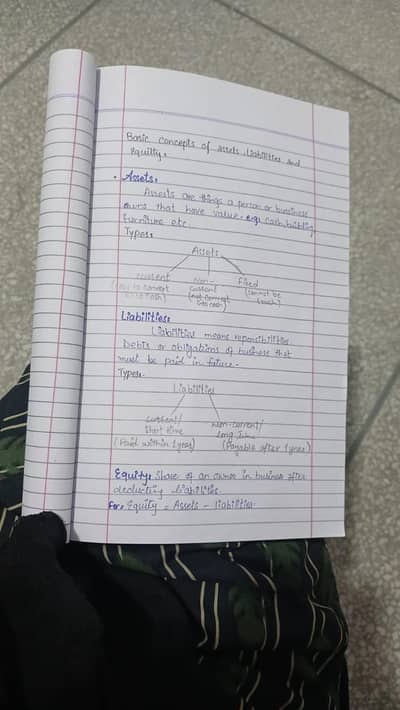 Basic concepts of assets, liabilities and
Equitty:
• Assets:
Assests are things a person or business
owns that have value. e.g: cash, building,
furniture etc.
Types:
Assets
current
(easy to convert
into cash)
Non-
current
(not convert
into cash)
Fixed
(cannot be
Liabilities:
Liabilities means reponsibilities.
Debits or obligations of business that
must be paid in future.
Types:-
Liabilities
current/
Short time
(Paid within 1 year)
Non-current/
long time
(Payable after 1 year)
Equity: Share of an owner in business after
deducting liabilities.
For: Equity = Assets - liabilities